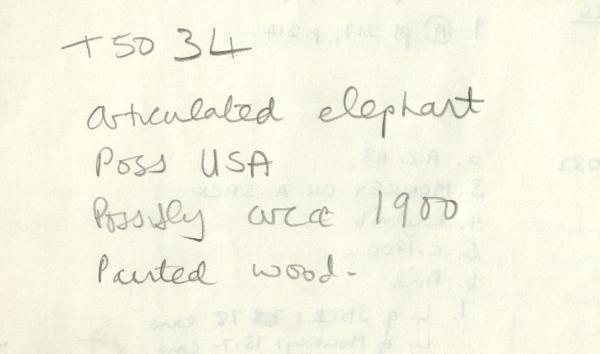 T5034
articulated elephant
Poss USA
Possibly circa 1900
Painted wood.